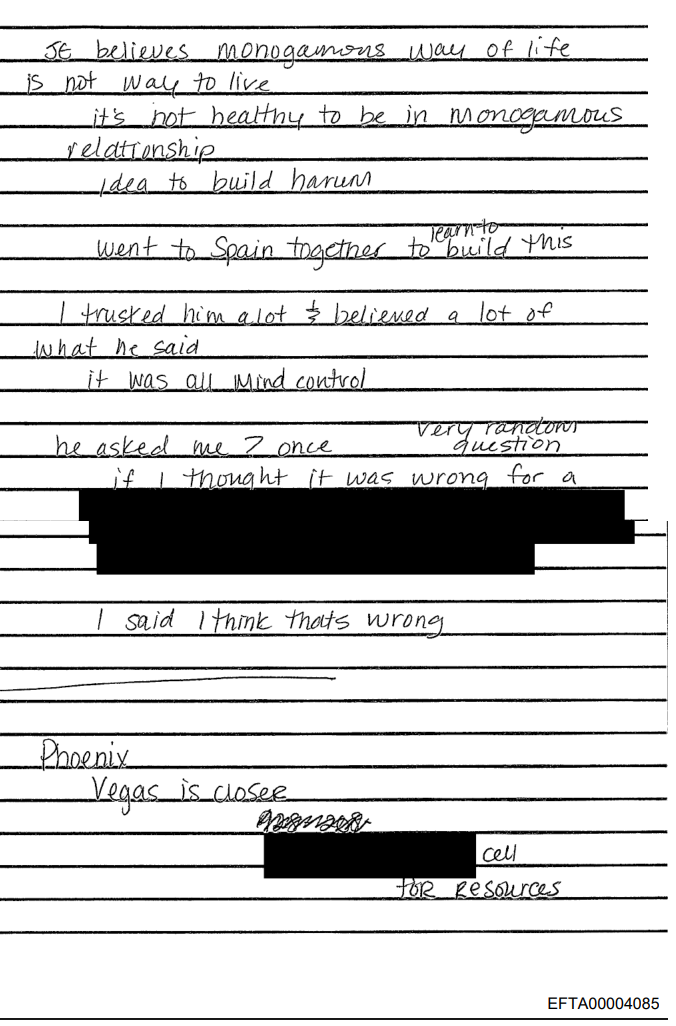 JE believes monogamous way of life
is not way to live
it's not healthy to be in monogamous
relationship
idea to build harum
learn to
went to Spain together to build this
I trusted him alot & believed a lot of
what he said
it was all mind control
very random
he asked me ? once question
if I thought it was wrong for a
I said I think thats wrong
Phoenix
Vegas is closer
cell
for resources
EFTA00004085